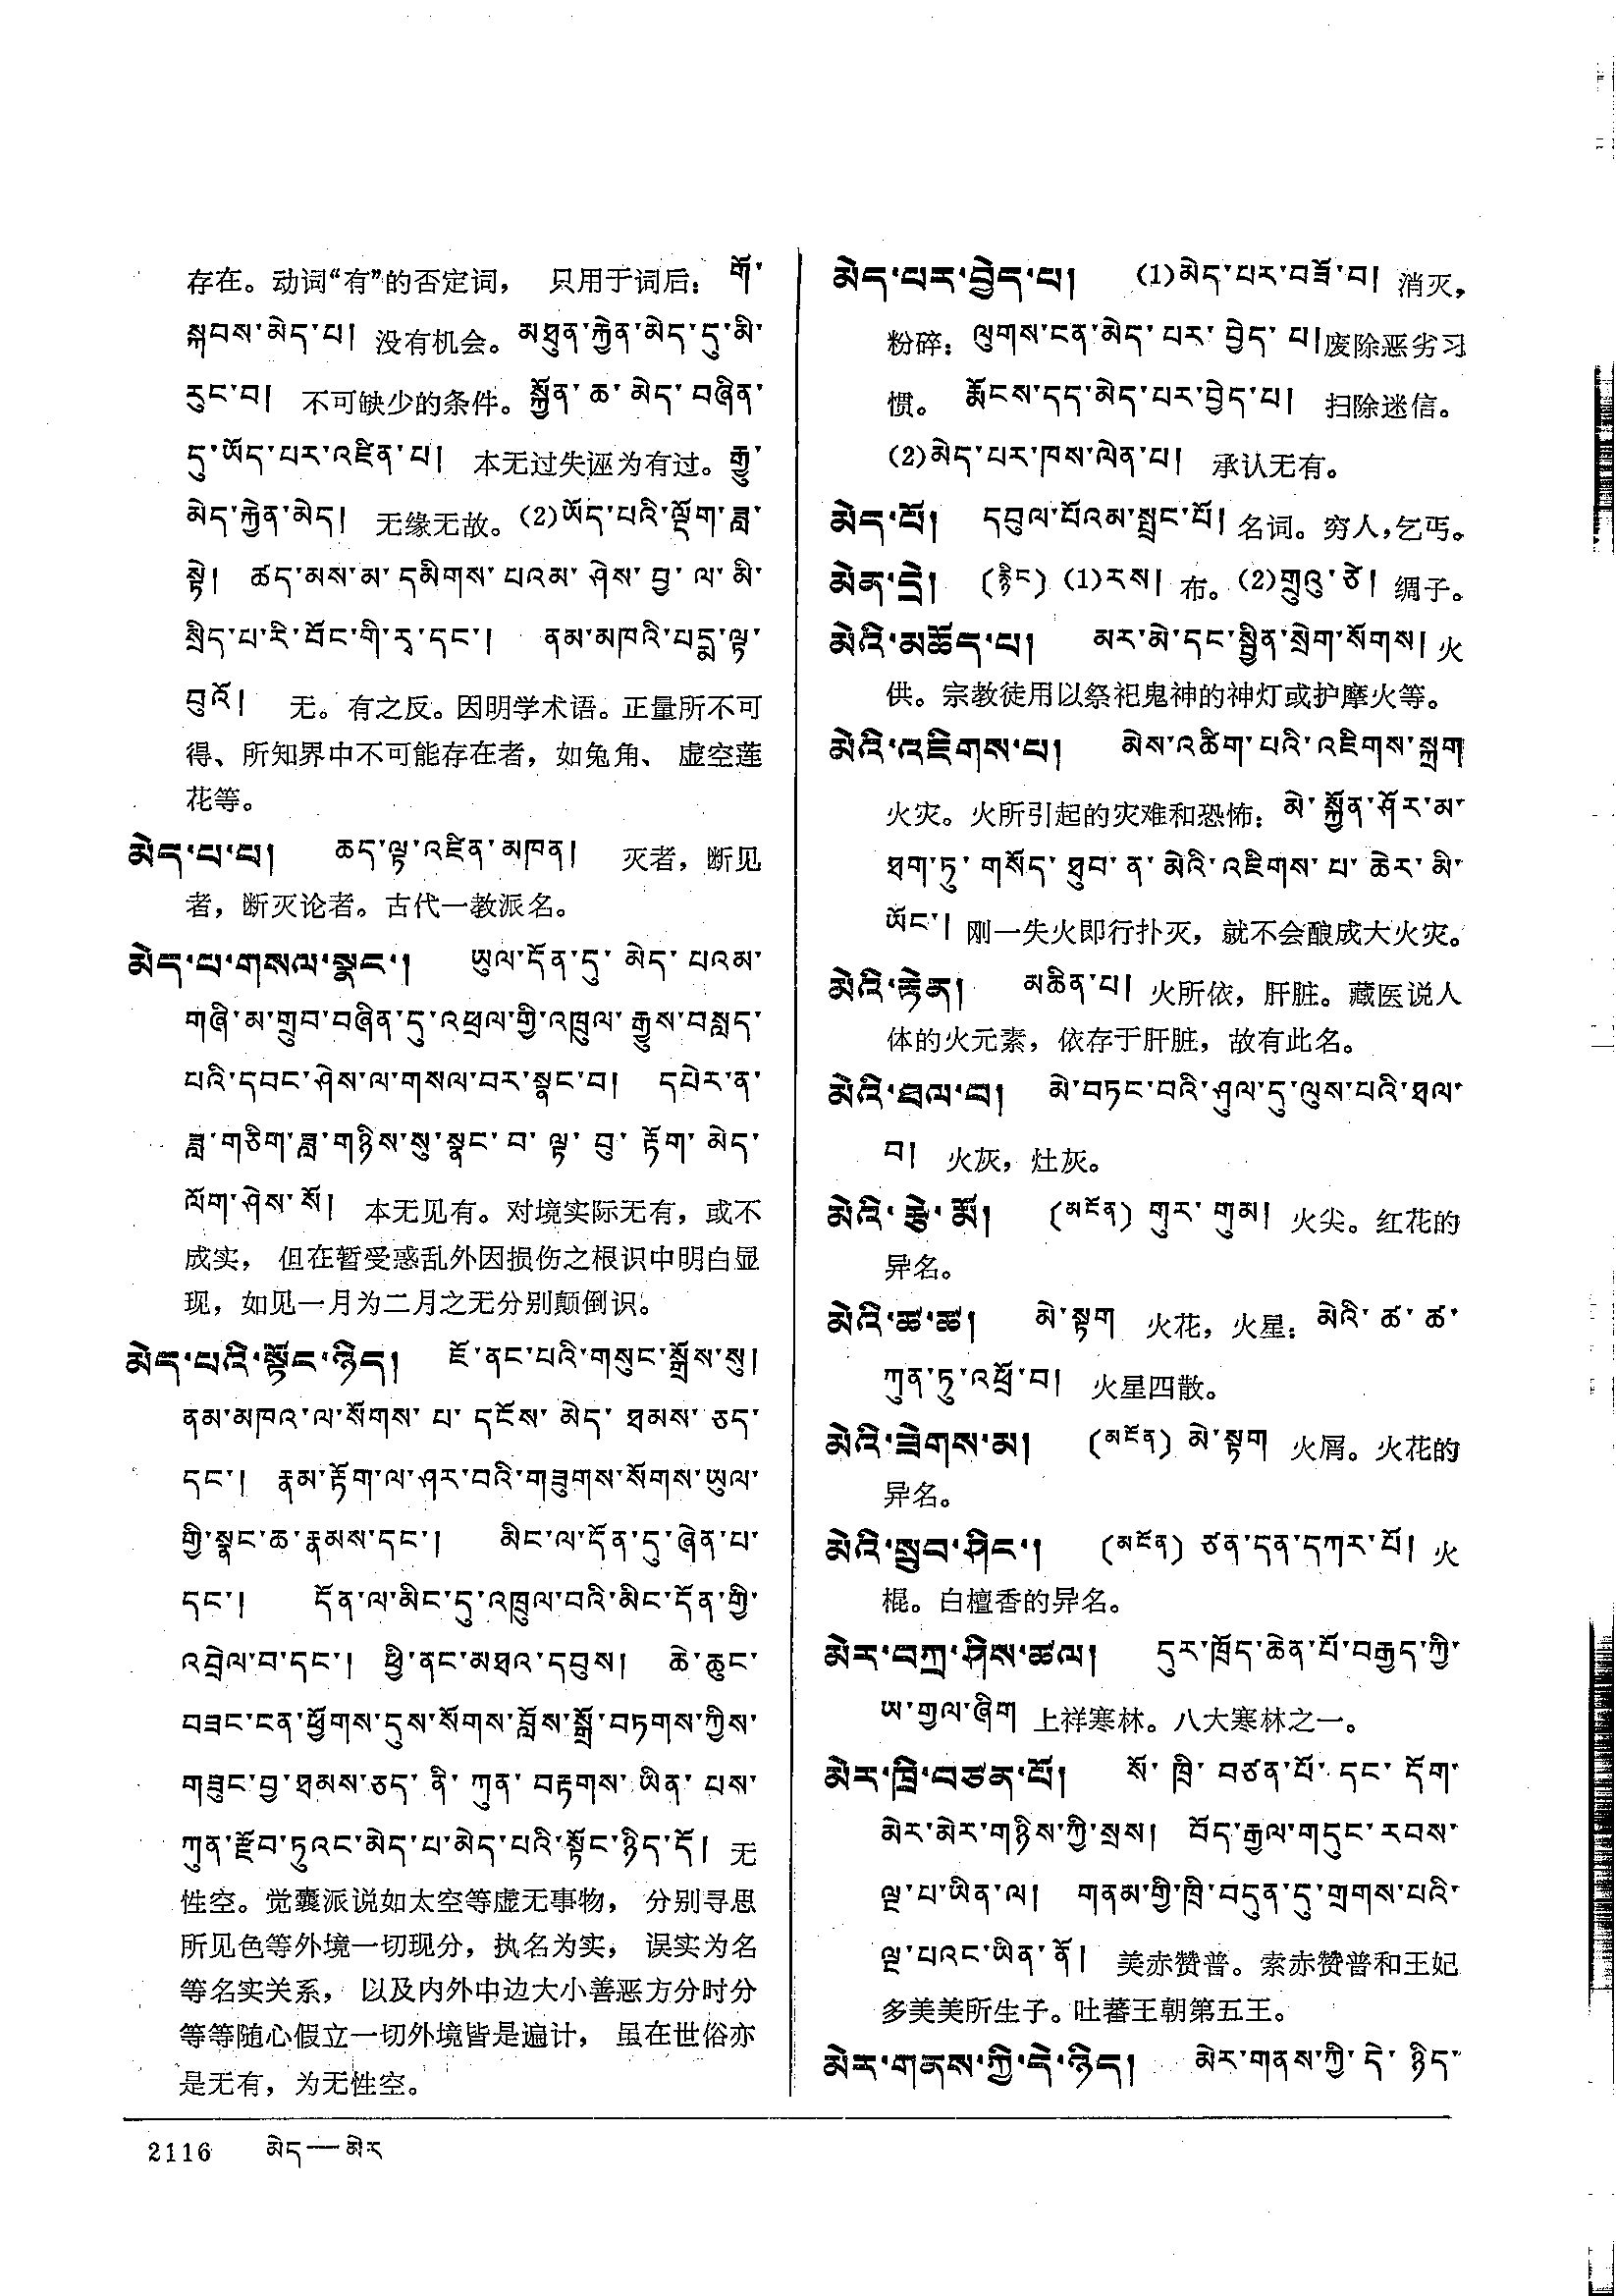 存在。动词“有”的否定词， 只用于词后： གོ་
སྐབས་མེད་པ། 没有机会。མཐུན་རྐྱེན་མེད་དུ་མི་
རུང་བ། 不可缺少的条件。སྐྱོན་ཆ་མེད་བཞིན་
དུ་ཡོད་པར་འཛིན་པ། 本无过失诬为有过。རྒྱུ་
མེད་རྐྱེན་མེད། 无缘无故。(2)ཡོད་པའི་ལྡོག་ཟླ་
སྟེ། ཚད་མས་མ་དམིགས་པའམ་ཤེས་བྱ་ལ་མི་
སྲིད་པ་རི་བོང་གི་རྭ་དང་། ནམ་མཁའི་པདྨ་ལྟ་
བུའོ། 无。有之反。因明学术语。正量所不可
得、所知界中不可能存在者，如兔角、 虚空莲
花等。
མེད་པ་པ། ཆད་ལྟ་འཛིན་མཁན། 灭者，断见
者，断灭论者。古代一教派名。
མེད་པ་གསལ་སྣང་། ཡུལ་དོན་དུ་མེད་པའམ་
གཞི་མ་གྲུབ་བཞིན་དུ་འཕྲལ་གྱི་འཁྲུལ་རྒྱུས་བསླད་
པའི་དབང་ཤེས་ལ་གསལ་བར་སྣང་བ། དཔེར་ན་
ཟླ་གཅིག་ཟླ་གཉིས་སུ་སྣང་བ་ལྟ་བུ་རྟོག་མེད་
ལོག་ཤེས་སོ། 本无见有。对境实际无有，或不
成实， 但在暂受惑乱外因损伤之根识中明白显
现，如见一月为二月之无分别颠倒识。
མེད་པའི་སྟོང་ཉིད། ཇོ་ནང་པའི་གསུང་སྒྲོས་སུ།
ནམ་མཁའ་ལ་སོགས་པ་དངོས་མེད་ཐམས་ཅད་
དང་། རྣམ་རྟོག་ལ་ཤར་བའི་གཟུགས་སོགས་ཡུལ་
གྱི་སྣང་ཆ་རྣམས་དང་། མིང་ལ་དོན་དུ་ཞེན་པ་
དང་། དོན་ལ་མིང་དུ་འཁྲུལ་བའི་མིང་དོན་གྱི་
འབྲེལ་བ་དང་། ཕྱི་ནང་མཐའ་དབུས། ཆེ་ཆུང་
བཟང་ངན་ཕྱོགས་དུས་སོགས་བློས་སྒྲོ་བཏགས་ཀྱིས་
གཟུང་བྱ་ཐམས་ཅད་ནི་ཀུན་བརྟགས་ཡིན་པས་
ཀུན་རྫོབ་ཏུའང་མེད་པ་མེད་པའི་སྟོང་ཉིད་དོ། 无
性空。觉囊派说如太空等虚无事物， 分别寻思
所见色等外境一切现分，执名为实， 误实为名
等名实关系， 以及内外中边大小善恶方分时分
等等随心假立一切外境皆是遍计， 虽在世俗亦
是无有，为无性空。
མེད་པར་བྱེད་པ། (1)མེད་པར་བཟོ་བ། 消灭，
粉碎：ལུགས་ངན་མེད་པར་བྱེད་པ།废除恶劣习
惯。 རྨོངས་དད་མེད་པར་བྱེད་པ། 扫除迷信。
(2)མེད་པར་ཁས་ལེན་པ། 承认无有。
མེད་པོ། དབུལ་པོའམ་སྤྲང་པོ། 名词。穷人，乞丐。
མེན་དྲི། (རྙིང) (1)རས། 布。(2)གྲུའུ་ཙེ། 绸子。
མེའི་མཆོད་པ། མར་མེ་དང་སྦྱིན་སྲེག་སོགས། 火
供。宗教徒用以祭祀鬼神的神灯或护摩火等。
མེའི་འཇིགས་པ། མེས་འཚིག་པའི་འཇིགས་སྐྲག
火灾。火所引起的灾难和恐怖：མེ་སྐྱོན་ཤོར་མ་
ཐག་ཏུ་གསོད་ཐུབ་ན་མེའི་འཇིགས་པ་ཆེར་མི་
ཡོང་། 刚一失火即行扑灭，就不会酿成大火灾。
མེའི་རྟེན། མཆིན་པ། 火所依，肝脏。藏医说人
体的火元素，依存于肝脏，故有此名。
མེའི་ཐལ་བ། མེ་བཏང་བའི་ཤུལ་དུ་ལུས་པའི་ཐལ་
བ། 火灰，灶灰。
མེའི་རྩེ་མོ། (མངོན) གུར་གུམ། 火尖。红花的
异名。
མེའི་ཚ་ཚ། མེ་སྟག 火花，火星：མེའི་ཚ་ཚ་
ཀུན་ཏུ་འཕྲོ་བ། 火星四散。
མེའི་ཟེགས་མ། (མངོན) མེ་སྟག 火屑。火花的
异名。
མེའི་སྲུབ་ཤིང་། (མངོན) ཙན་དན་དཀར་པོ། 火
棍。白檀香的异名。
མེར་བཀྲ་ཤིས་ཚལ། དུར་ཁྲོད་ཆེན་པོ་བརྒྱད་ཀྱི་
ཡ་གྱལ་ཞིག 上祥寒林。八大寒林之一。
མེར་ཁྲི་བཙན་པོ། སོ་ཁྲི་བཙན་པོ་དང་དོག་
མེར་མེར་གཉིས་ཀྱི་སྲས། བོད་རྒྱལ་གདུང་རབས་
ལྔ་པ་ཡིན་ལ། གནམ་གྱི་ཁྲི་བདུན་དུ་གྲགས་པའི་
ལྔ་པའང་ཡིན་ནོ། 美赤赞普。索赤赞普和王妃
多美美所生子。吐蕃王朝第五王。
མེར་གནས་ཀྱི་དེ་ཉིད། མེར་གནས་ཀྱི་དེ་ཉིད་
2116 མེད—མེར